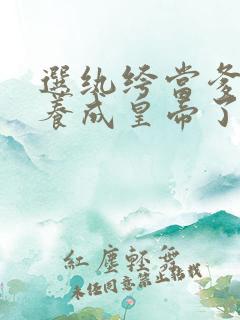 選紈絝當爹
養成皇帝了
紅塵輕舞
未經同意禁止轉載